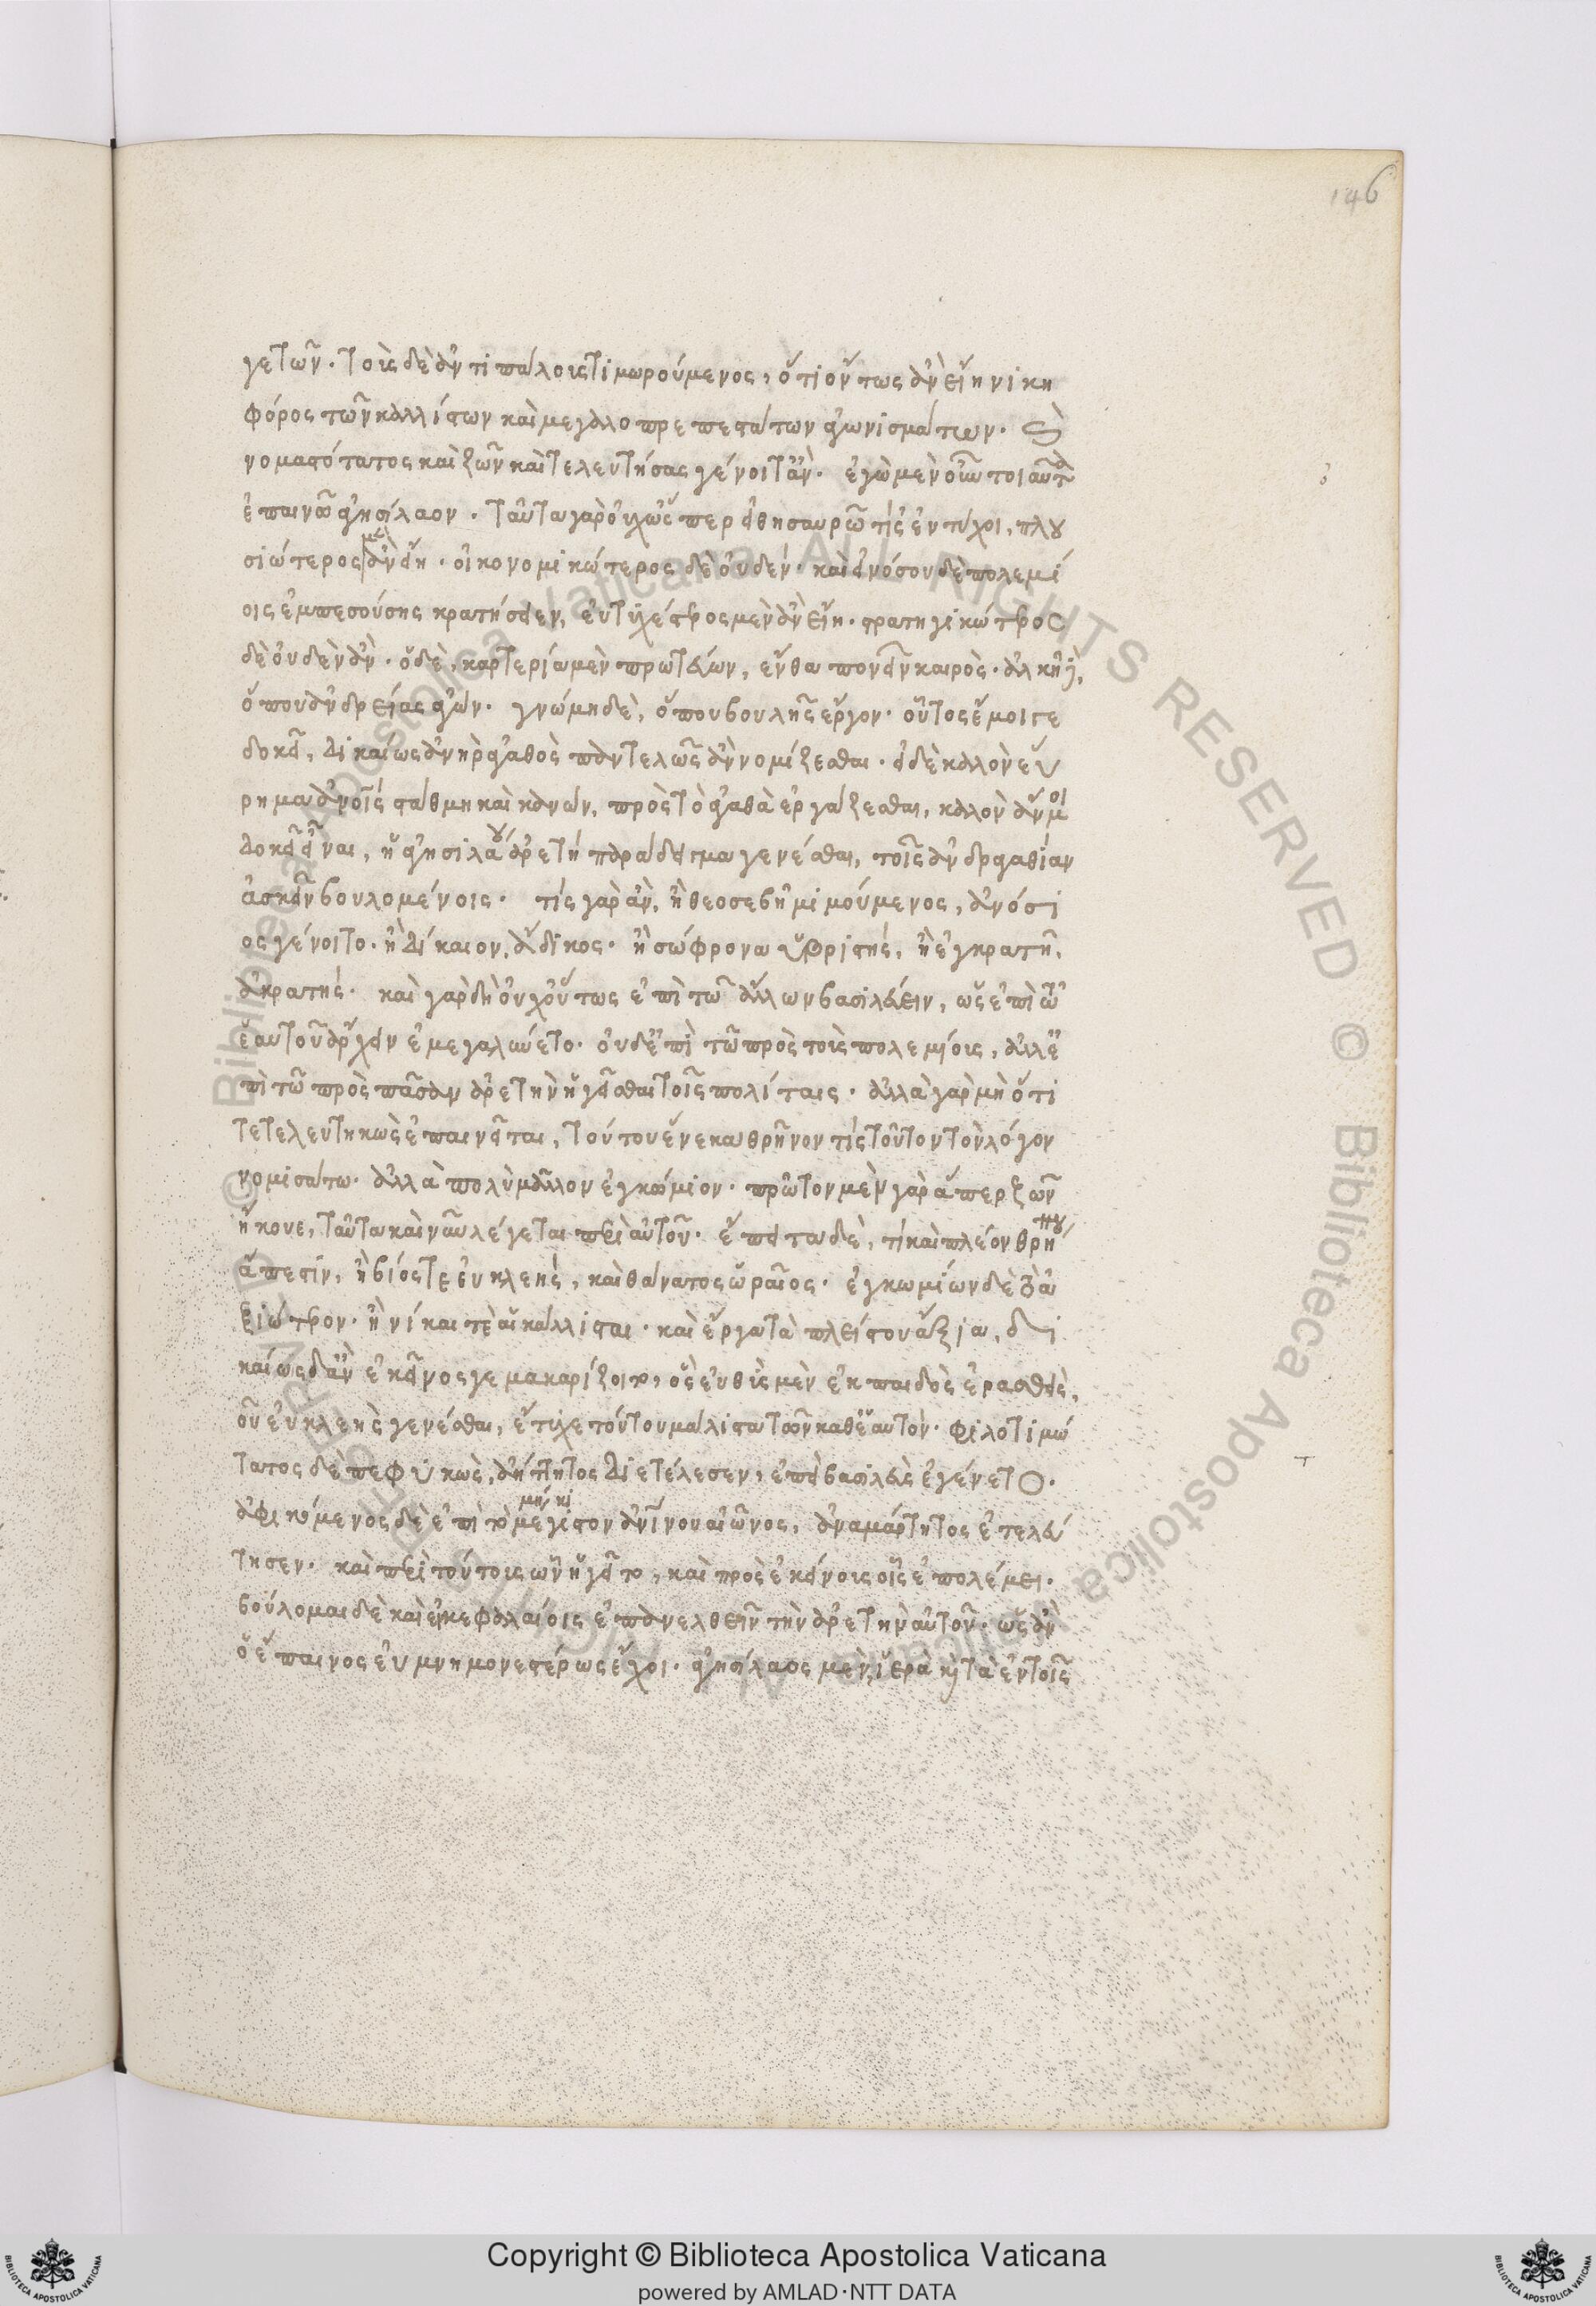 146
γετῶν. τοὺς δὲ ἀντιπάλους τιμωρούμενος, ὅτι οὕτως ἂν εἴη νικη
φόρος τῶν καλλίστων καὶ μεγαλοπρεπεστάτων ἀγωνισμάτων. ὀ
νομαστότατος καὶ ζῶν καὶ τελευτήσας γένοιτ' ἄν. ἐγὼ μὲν οὖν τοιαῦτα
ἐπαινῶ ἀγησίλαον. ταῦτα γὰρ οὐχ ὥσπερ εἰ θησαυρῶ τίς ἐντύχοι, πλου
σιώτερος μὲν ἂν εἴη. οἰκονομικώτερος δὲ οὐδέν. καὶ εἰ νόσου δὲ πολεμί
οις ἐμπεσούσης κρατήσειεν, εὐτυχέστερος μὲν ἂν εἴη. στρατηγικώτερος
δὲ οὐδὲν ἄν. ὁ δὲ, καρτερία μὲν πρωτεύων, ἔνθα πονεῖν καιρὸς. ἀλκῆ δὲ,
ὅπου ἀνδρείας ἀγών. γνώμη δὲ, ὅπου βουλῆς ἔργον. οὗτος ἔμοιγε
δοκεῖ, δικαίως ἀνὴρ ἀγαθὸς παντελῶς ἂν νομίζεσθαι. εἰ δὲ καλὸν εὕ
ρημα ἀνθρώποις στάθμη καὶ κανών, πρὸς τὸ ἀγαθὰ ἐργάζεσθαι, καλὸν ἄν μοι
δοκεῖ εἶναι, ἡ ἀγησιλάου ἀρετὴ παράδειγμα γενέσθαι, τοῖς ἀνδραγαθίαν
ἀσκεῖν βουλομένοις. τίς γὰρ ἂν, ἢ θεοσεβῆ μιμούμενος, ἀνόσι
ος γένοιτο. ἢ δίκαιον, ἄδικος. ἢ σώφρονα ὑβριστής, ἢ ἐγκρατῆ,
ἀκρατής. καὶ γὰρ δὴ οὐχ οὕτως ἐπὶ τῶ ἄλλων βασιλεύειν, ὡς ἐπὶ τῶ
ἑαυτοῦ ἄρχειν ἐμεγαλύνετο. οὐδ' ἐπὶ τῶ πρὸς τοὺς πολεμίους, ἀλλ' ἐ
πὶ τῶ πρὸς πᾶσαν ἀρετὴν ἡγεῖσθαι τοῖς πολίταις. ἀλλὰ γὰρ μὴ ὅτι
τετελευτηκὼς ἐπαινεῖται, τούτου ἕνεκα θρῆνον τίς τοῦτον τὸν λόγον
νομισάτω. ἀλλὰ πολὺ μᾶλλον ἐγκώμιον. πρῶτον μὲν γὰρ ἅπερ ζῶν
ἤκουε, ταῦτα καὶ νῦν λέγεται περὶ αὐτοῦ. ἔπειτα δὲ, τί καὶ πλέον θρήνου
ἄπεστιν, ἢ βίος τε εὐκλεής, καὶ θάνατος ὡραῖος. ἐγκωμίων δὲ τί ἀ
ξιώτερον. ἢ νίκαι τε αἱ κάλλισται. καὶ ἔργα τὰ πλείστου ἄξια, δι
καίως δ' ἂν ἐκεῖνός γε μακαρίζοιτο, ὃς εὐθὺς μὲν ἐκ παιδὸς ἐρασθεὶς,
τοῦ εὐκλεὴς γενέσθαι, ἔτυχε τούτου μάλιστα τῶν καθ' ἑαυτόν. φιλοτιμώ
τατος δὲ πεφυκὼς, ἀήττητος διετέλεσεν, ἐπεὶ βασιλεὺς ἐγένετο.
ἀφικόμενος δὲ ἐπὶ τὸ μήκιστον ἀνθρωπίνου αἰῶνος, ἀναμάρτητος ἐτελεύ
τησεν. καὶ περὶ τούτους ὧν ἡγεῖτο, καὶ πρὸς ἐκείνους οἷς ἐπολέμει.
βούλομαι δὲ καὶ ἐν κεφαλαίοις ἐπανελθεῖν τὴν ἀρετὴν αὐτοῦ. ὡς ἂν
ὁ ἔπαινος εὐμνημονεστέρως ἔχοι. ἀγησίλαος μὲν, ἱερὰ καὶ τὰ ἐν τοῖς
Copyright © Biblioteca Apostolica Vaticana
powered by AMLAD·NTT DATA